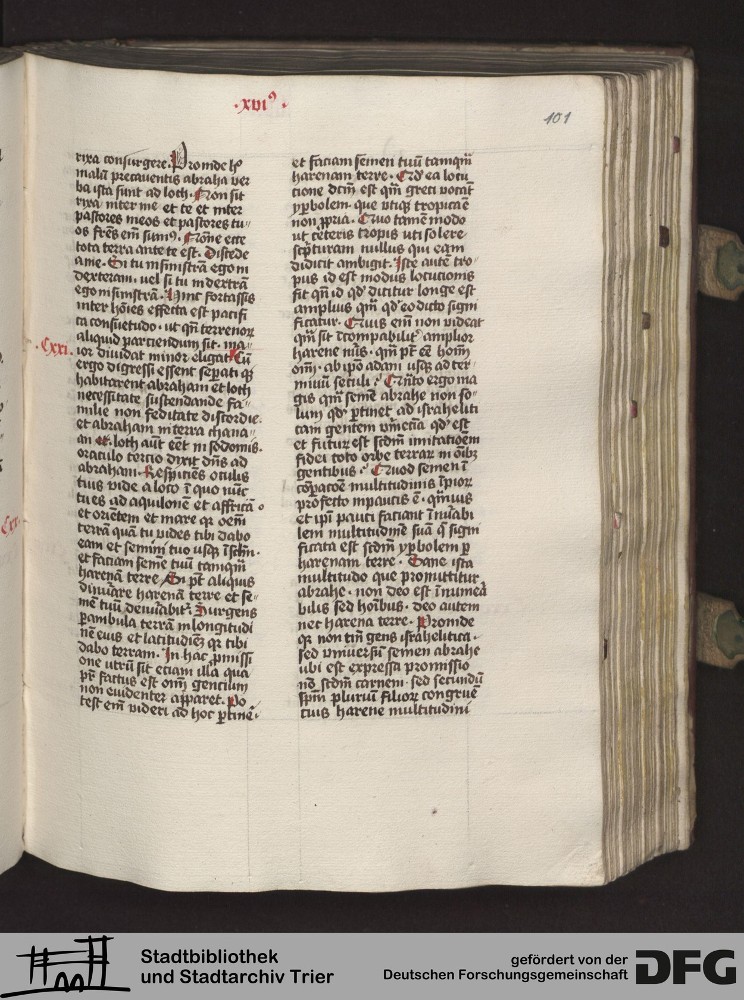 ·xvi⁹·
101
rixa consurgere. Proinde h⁹
malū precauentis abrahā ver
ba ista sunt ad loth. Non sit
rixa inter me et te et inter
pastores meos et pastores tu"
os fr̄es em̄ sum⁹. Nōne ecce
tota terra ante te est. Discede
a me. Si tu in sinistrā ego in
dexteram. vel si tu in dextrā
ego in sinistrā. Hinc fortassis
inter hoīes effecta est pacifi
ca consuetudo. ut qn̄ terrenoꝝ
aliquid parciendum sit. ma"
·Cxxi.
ior diuidat minor eligat. Cū
ergo digressi essent sep̄ati qꝫ
habitarent abraham et loth
necessitate sustendande fa"
milie non feditate discordie.
et abraham in terra chana"
an et loth aūt eēt in sodomis.
oraculo tercio dixit dn̄s ad
abraham. Respiciēs oculis
tuis vide a loco ī quo nūc
tu es ad aquilonē et affricā
et orientem et mare qꝛ oēm
terrā quā tu vides tibi dabo
eam et semini tuo usqꝫ ī sclm̄.
et faciam semē tuū tamqm̄
harenā terre. Si pt̄ aliquis
dinūare harenā terre et se"
mē tuū denūabitᷣ. Surgens
ꝑambula terrā in longitudi
nē eius et latitudinē qꝛ tibi
dabo terram. In hac ꝓmissi
one utrū sit eciam illa qua
pr̄ factus est oīm gencium
non euidenter apparet. Po
test em̄ videri ad hoc ꝑtinē.
et faciam semen tuū tamqm̄
harenam terre. Qd ea locu
cione dcm̄ est qm̄ greci vocāt
yꝑbolem. que vtiqꝫ tropica ē
non ꝓpria. Quo tamē modo
ut ceteris tropis uti solere
scpturam nullus qui eam
didicit ambigit. Iste autē tro"
pus id est modus locucionis
fit qn̄ id qd dicitur longe est
amplius qm̄ qd eo dicto signi
ficatur. Quis em̄ non videat
qm̄ sit īcompabilitᷣ amplior
harene nūs. qm̄ pt̄ eē hoīm
oīm. ab ipo adam usqꝫ ad ter"
minū seculi. Qn̄to ergo ma
gis qm̄ semē abrahe non so"
lum qd ꝑtinet ad israheliti
cam gentem verūeciā qd est
et futur̄ est scdm imitacioēm
fidei toto orbe terrar̄ in oībꝫ
gentibus. Quod semen ī
cōꝑacoē multitudinis īpioꝝ
ꝓfecto in paucis ē. qm̄uis
et ipī pauci faciant īnūabi
lem multitudinē suā q̄ signi
ficata est scdm yꝑbolem ꝑ
harenam terre. Sane ista
multitudo que promittitur
abrahe. non deo est īnumea
bilis sed hoībus. deo autem
nec harena terre. Proinde
qꝛ non tm̄ gens israhelitica.
sed vniuersū semen abrahe
ubi est expressa promissio
nō scdm carnem. sed secundū
sp̄m pluriū filioꝝ congruē"
cius harene multitudini
Cxx.
Stadtbibliothek
und Stadtarchiv Trier
gefördert von der
Deutschen Forschungsgemeinschaft
DFG